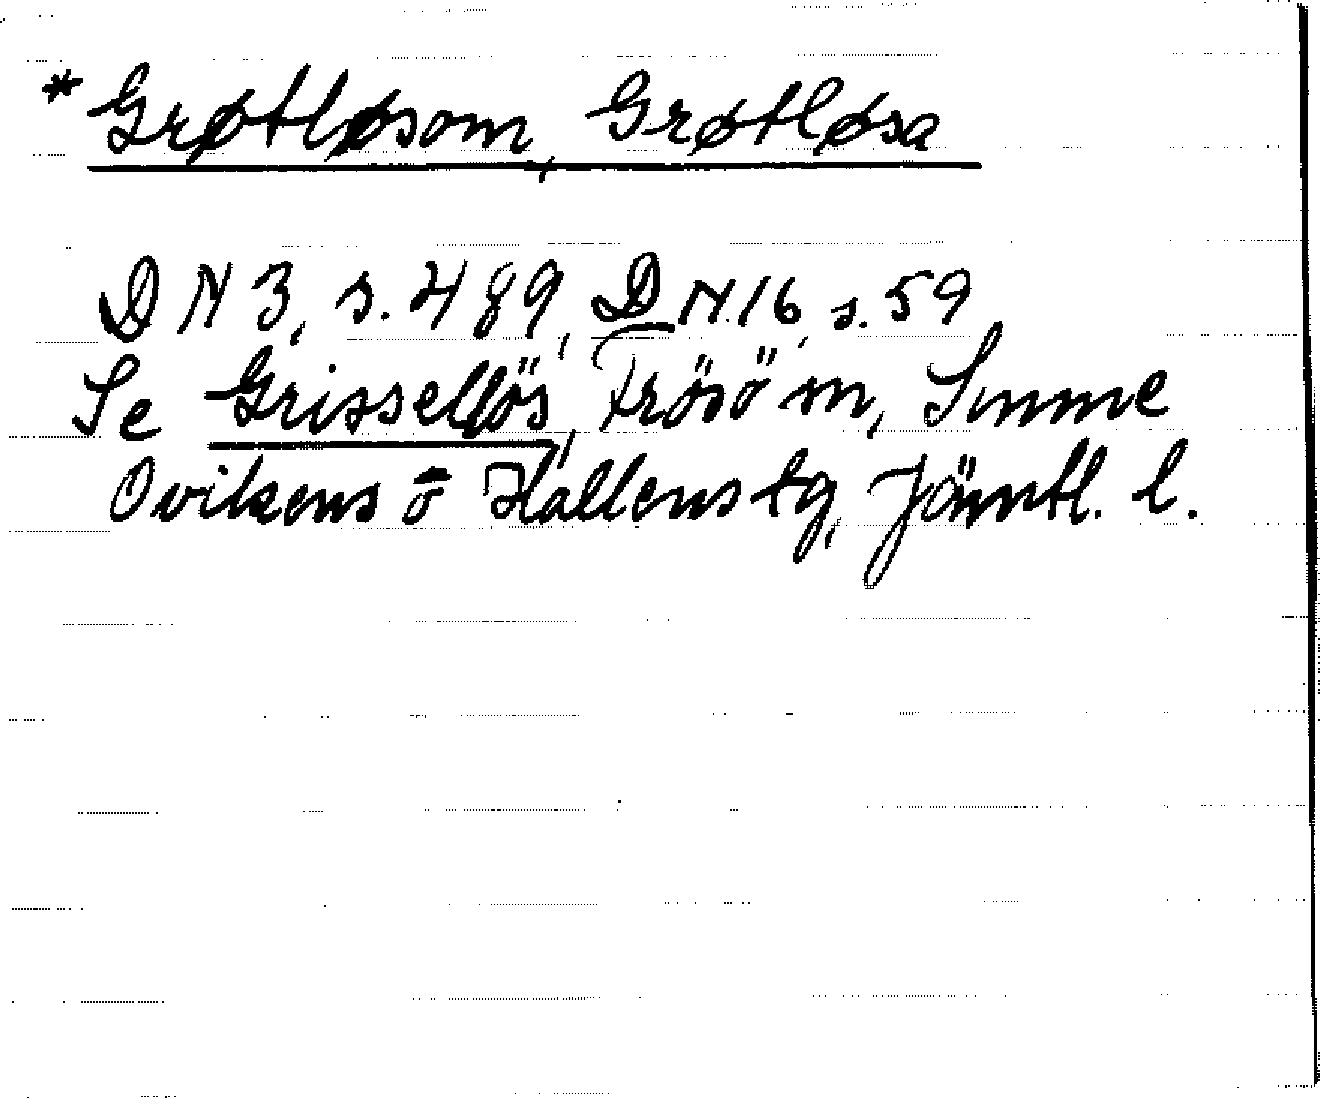 * Grøtløsom, Grøtløsa
DN 3, s. 489, DN.16, s. 59
Se Grissellös, Frösö sn, Sunne
Ovikens o Hallens tg, Jämtl. l.